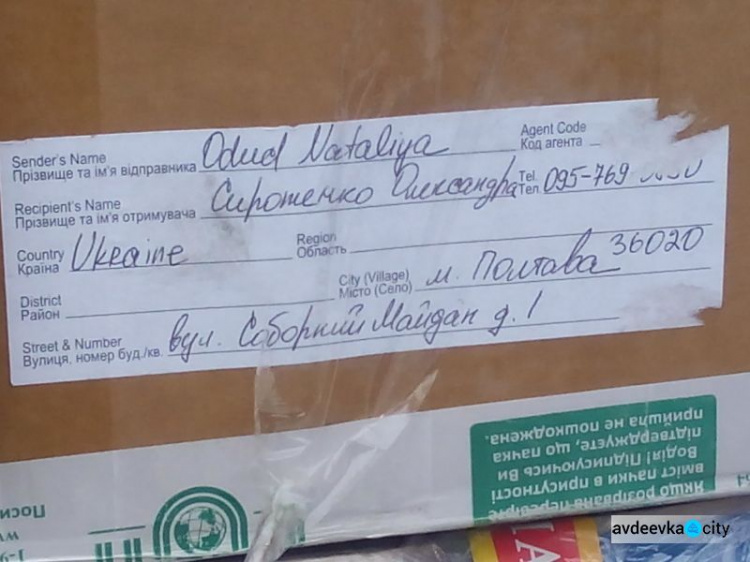 Sender's Name Odud Nataliya Agent Code
Прізвище та ім'я відправника Код агента
Recipient's Name Сироженко Олександра Tel. 095-769
Прізвище та ім'я отримувача Тел.
Country Ukraine Region
Країна Область
District City (Village) м. Полтава 36020
Район Місто (Село)
Street & Number вул. Соборний Майдан д. 1
Вулиця, номер буд./кв.
Якщо розірвана перевірте
вміст пачки в присутності
Водія! Підписуючись Ви
підтверджуєте, що пачка
прийшла не пошкоджена.
Поси
1-9
avdeevka city